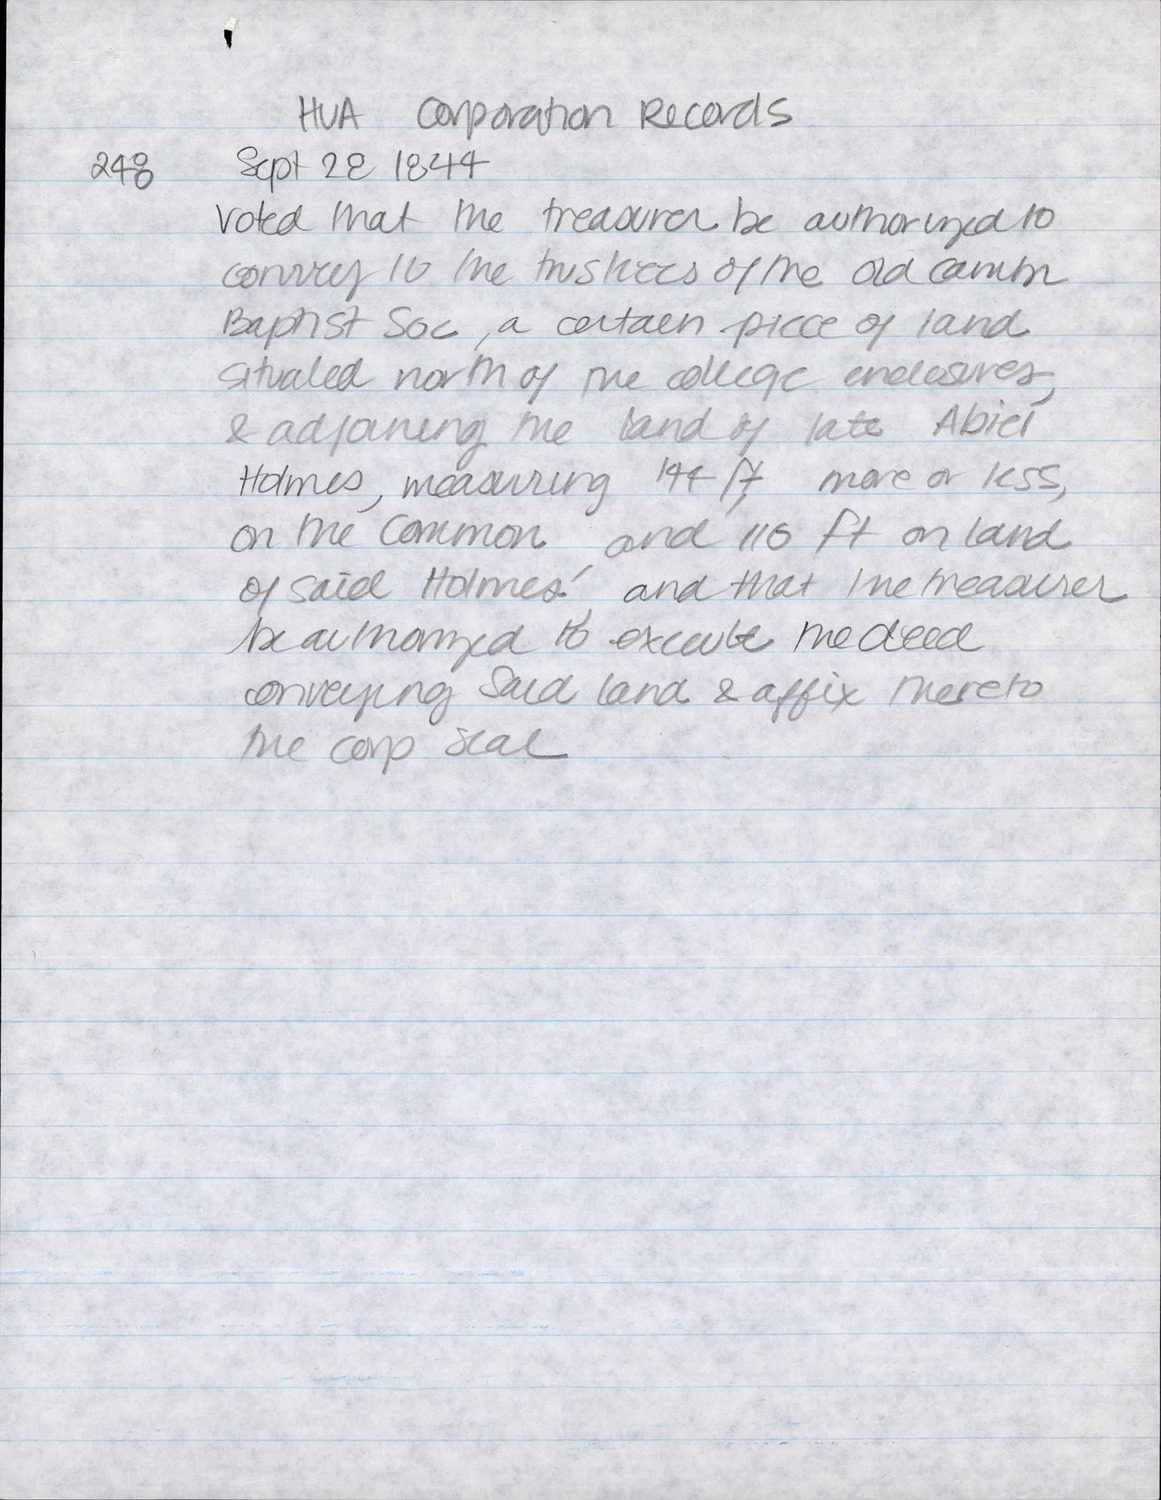 HUA Corporation Records
248 Sept 28 1844
Voted that the treasurer be authorized to
convey to the trustees of the Old Camb
Baptist Soc, a certain piece of land
situated north of the college enclosures,
& adjoining the land of late Abiel
Holmes, measuring 144 ft, more or less,
on the Common and 110 ft on land
of said Holmes' and that the treasurer
be authorized to execute the deed
conveying said land & affix thereto
the corp seal